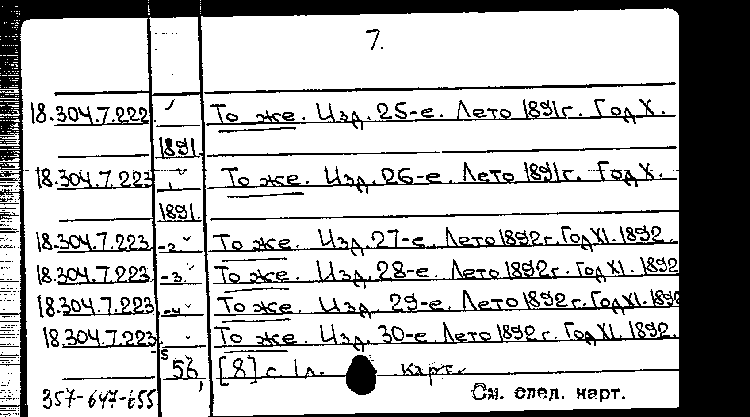 7.
18.304.7.222 То же. Изд. 25-е. Лето 1891г. Год X.
1891.
18.304.7.223 1 То же. Изд. 26-е. Лето 1891г. Год X.
1891
18.304.7.223 -2 То же. Изд. 27-е. Лето 1892г. Год XI. 1892.
18.304.7.223 -3 То же. Изд. 28-е. Лето 1892г. Год XI. 1892
18.304.7.223 -4 То же. Изд. 29-е. Лето 1892г. Год XI. 1892
18.304.7.223 То же. Изд. 30-е. Лето 1892г. Год XI. 1892.
5
56, [8] с. 1л. карт.
357-647-655 См. след. карт.